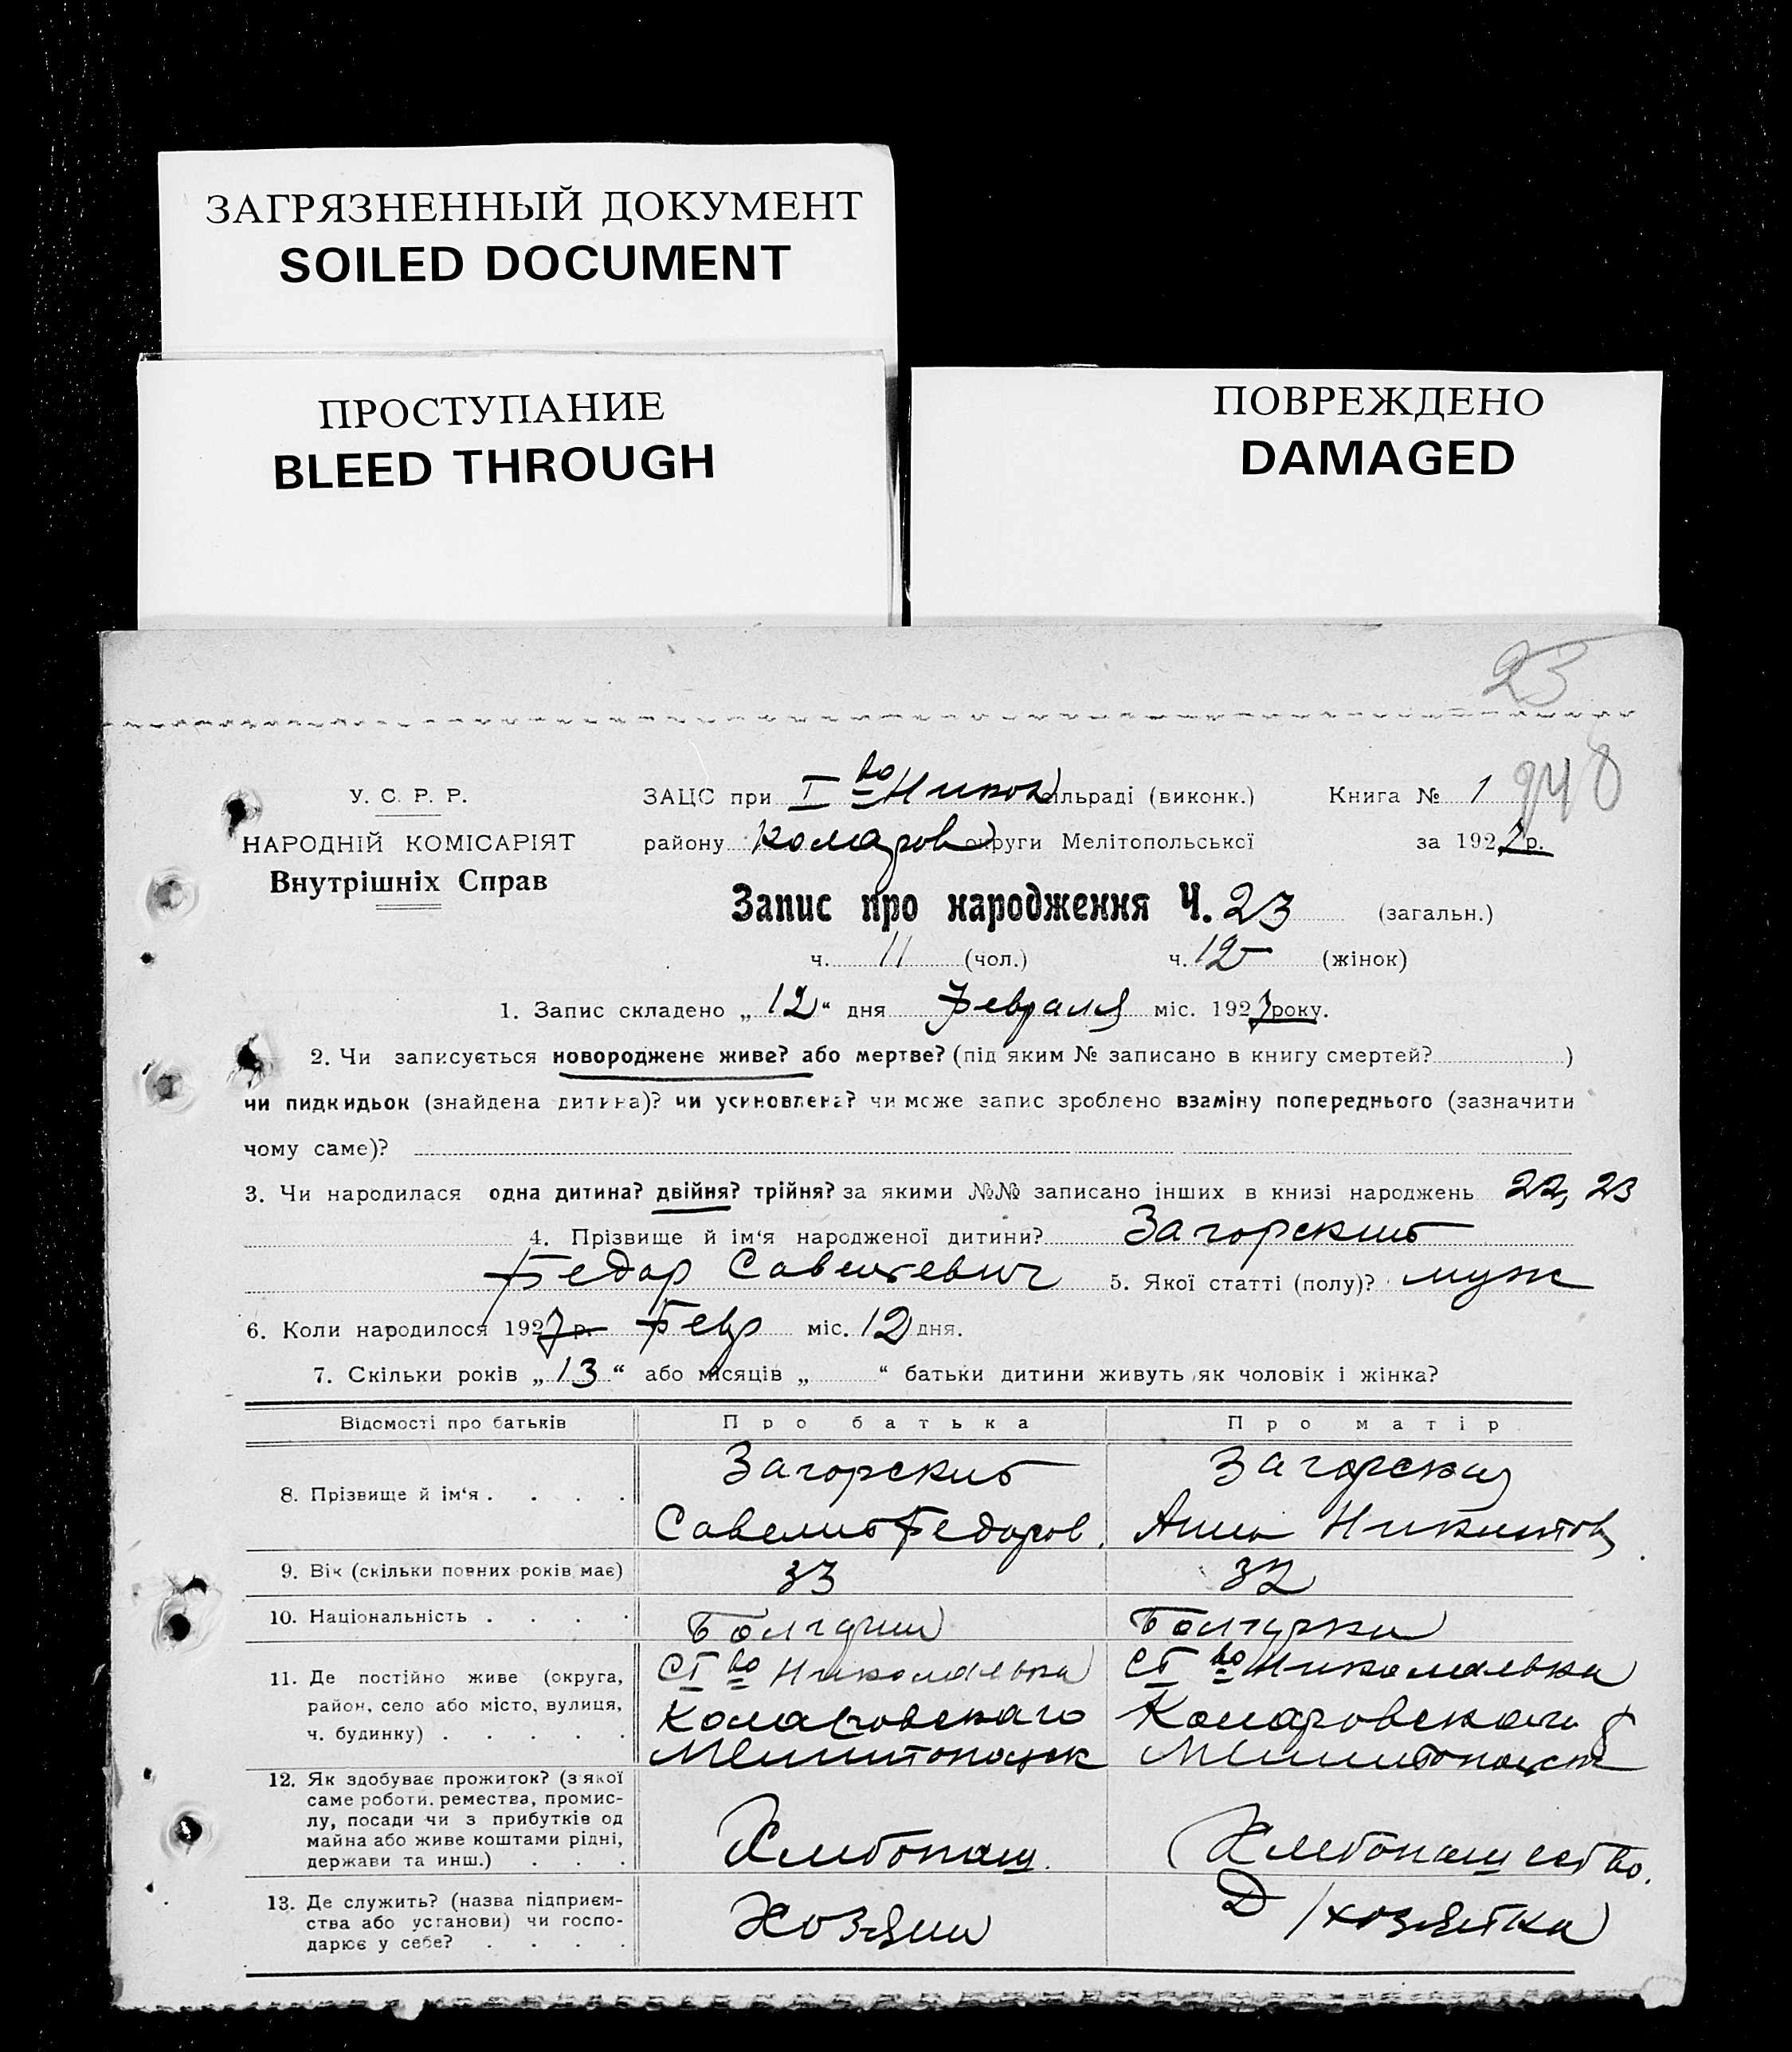 ЗАГРЯЗНЕННЫЙ ДОКУМЕНТ
SOILED DOCUMENT
ПРОСТУПАНИЕ
BLEED THROUGH
ПОВРЕЖДЕНО
DAMAGED
23
948
У. С. Р. Р.
НАРОДНІЙ КОМІСАРІЯТ
Внутрішніх Справ
ЗАЦС при I во Никол сільраді (виконк.) Книга № 1
району Комаров округи Мелітопольської за 1927 р.
Запис про народження Ч. 23 (загальн.)
ч. 11 (чол.) ч. 12 (жінок)
1. Запис складено „ 12 “ дня Февраля міс. 1927 року.
2. Чи записується новороджене живе? або мертве? (під яким № записано в книгу смертей? )
чи пидкидьок (знайдена дитина)? чи усиновлена? чи може запис зроблено взаміну попереднього (зазначити
чому саме)?
3. Чи народилася одна дитина? двійня? трійня? за якими №№ записано інших в книзі народжень 22, 23
4. Прізвище й ім‘я народженої дитини? Загорский
Федор Савельевич 5. Якої статті (полу)? муж
6. Коли народилося 1927 р. Февр міс. 12 дня.
7. Скільки років „ 13 “ або місяців „ “ батьки дитини живуть як чоловік і жінка?
Відомості про батьків Про батька Про матір
8. Прізвище й ім‘я . . . . Загорский Загорская
Савелий Федоров. Анна Никитов
9. Вік (скільки повних років має) 33 32
10. Національність . . . . Болгарин Болгарка
11. Де постійно живе (округа, С I во Николаевка С I во Николаевка
район, село або місто, вулиця, Комаровского Комаровского р
ч. будинку) . . . . . Мелитопольск Мелитопольск
12. Як здобуває прожиток? (з якої
саме роботи, ремества, промис-
лу, посади чи з прибутків од
майна або живе коштами рідні, Хлебопаш. Хлебопашество.
держави та инш.) . . .
13. Де служить? (назва підприєм-
ства або установи) чи госпо- Хозяин Д/хозяйка
дарює у себе? . . . .